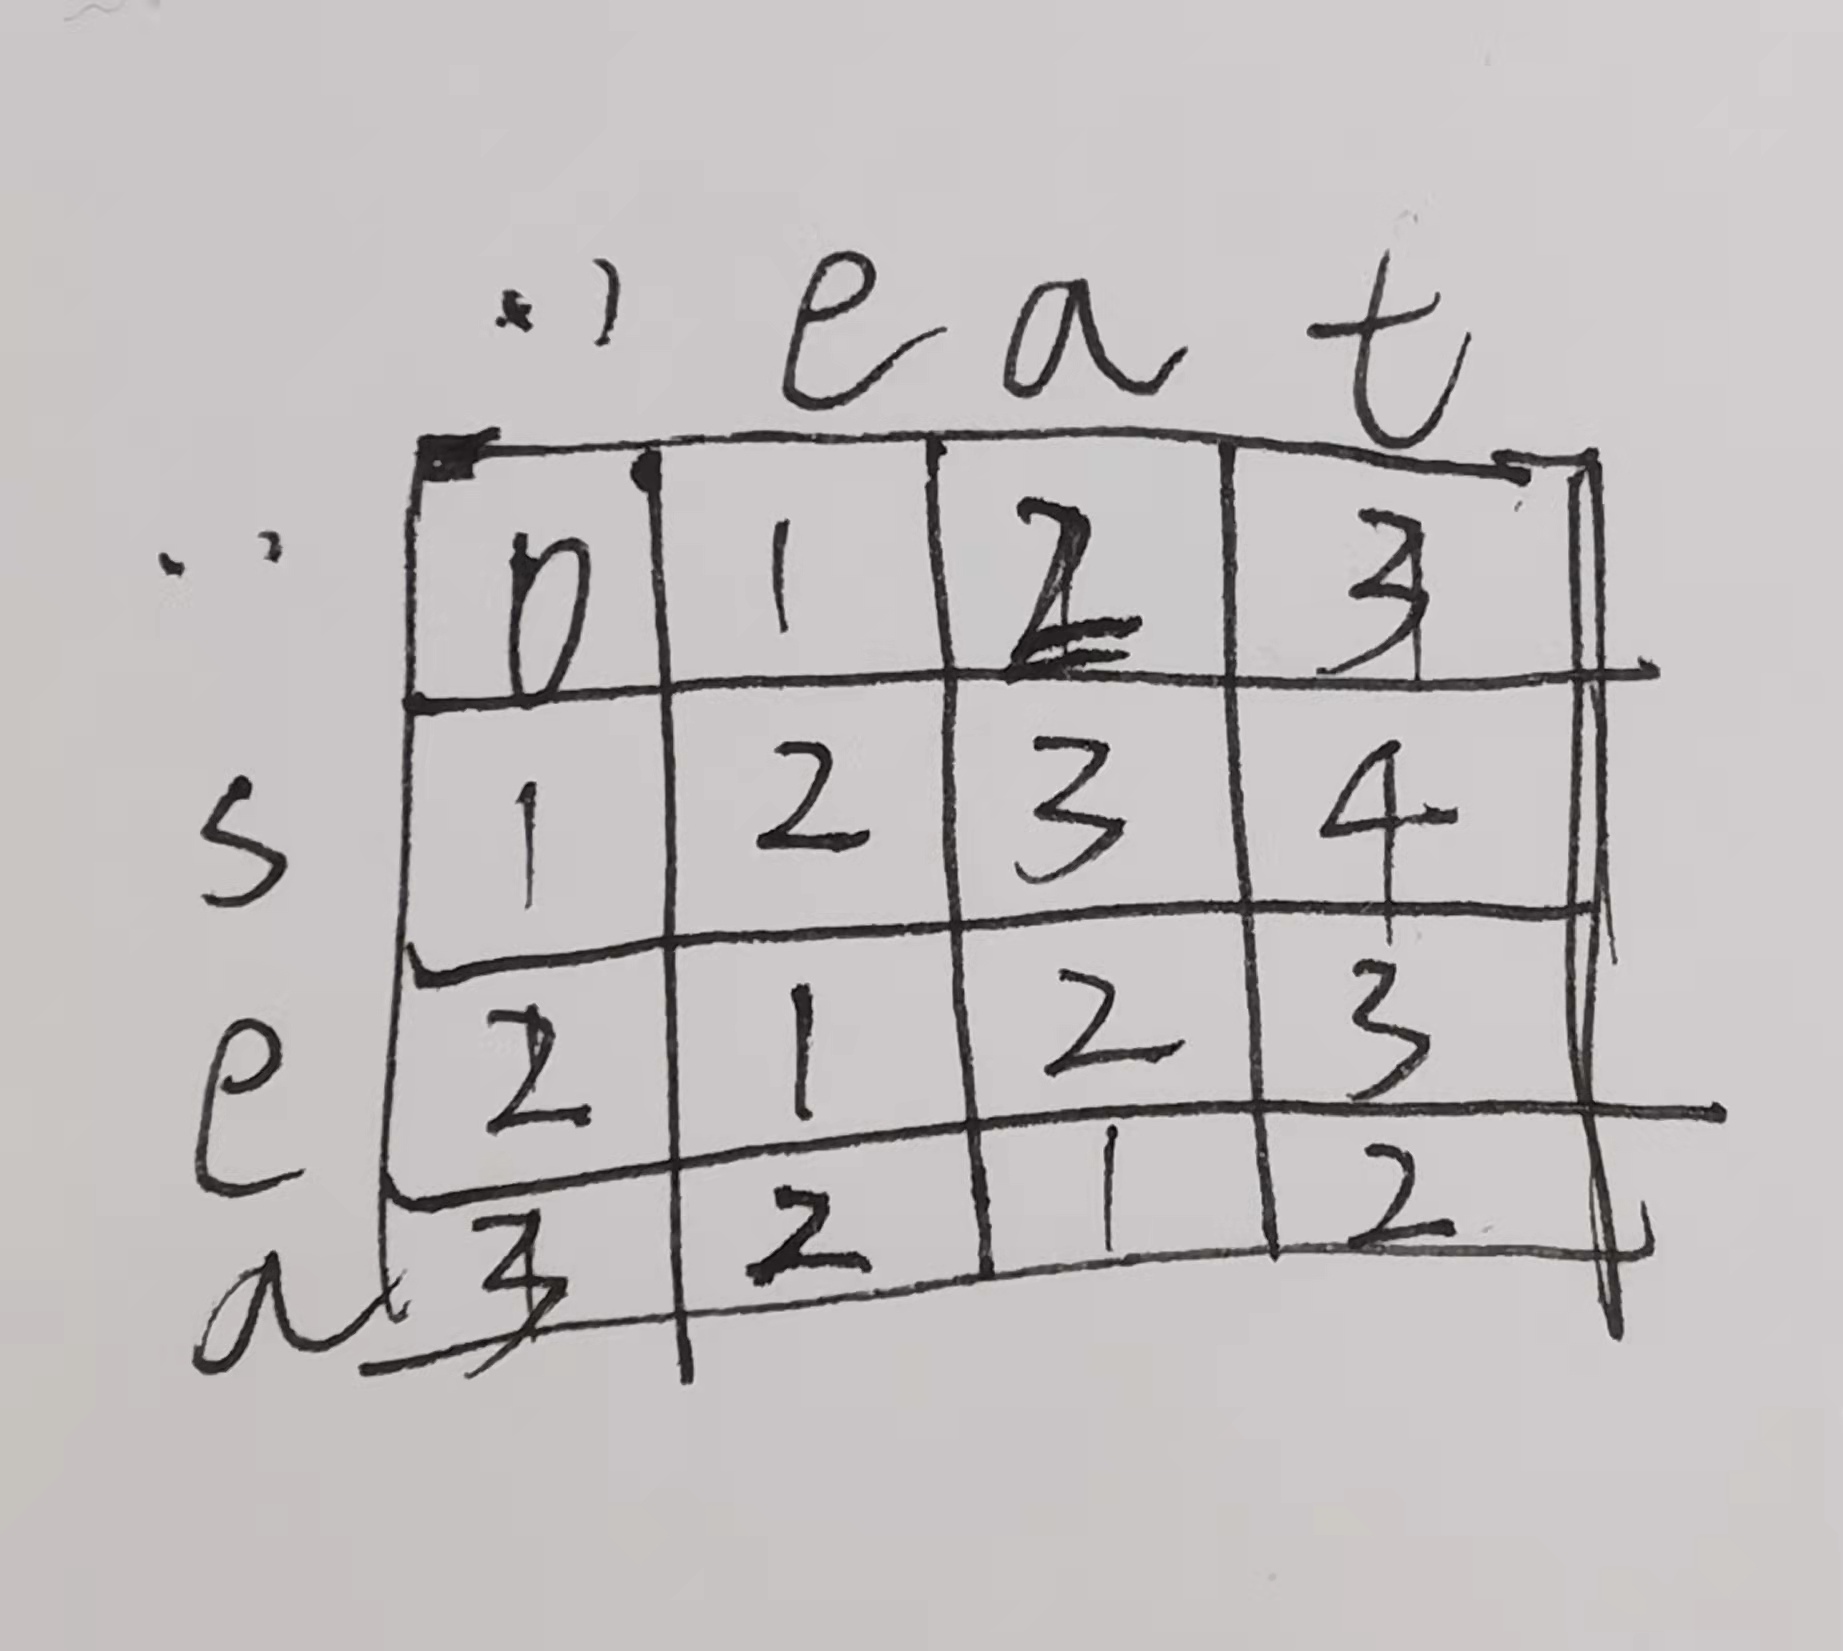 '' e a t
'' 0 1 2 3
s 1 2 3 4
e 2 1 2 3
a 3 2 1 2